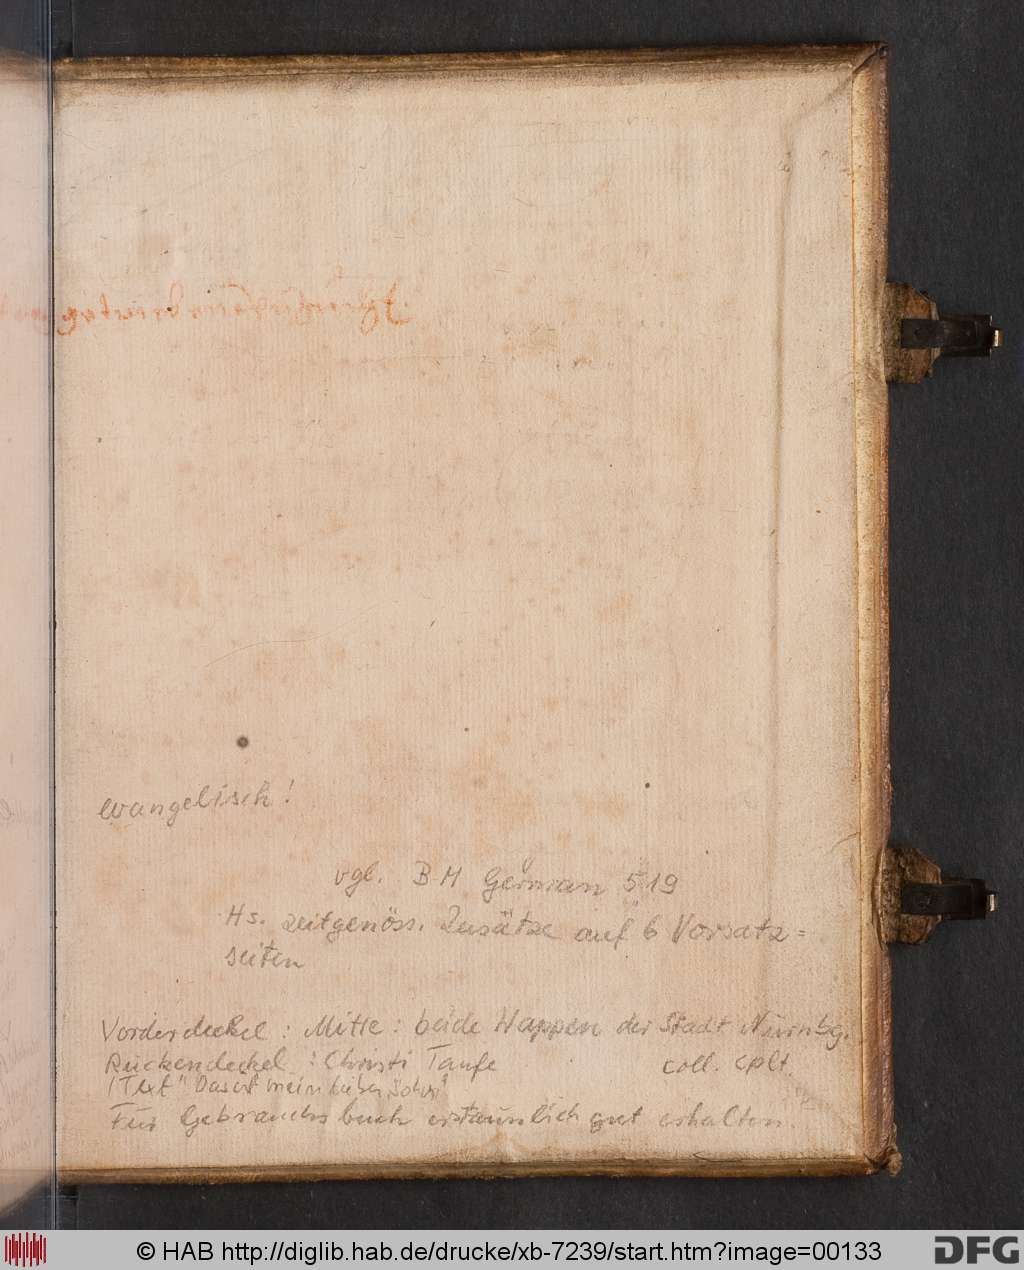 evangelisch!
vgl. BM German 519
Hs. zeitgenöss. Zusätze auf 6 Vorsatz=
seiten
Vorderdeckel: Mitte: beide Wappen der Stadt Nürnbg.
Rückendeckel: Christi Taufe coll. cplt.
(Text "Das ist mein lieber Sohn"
Für Gebrauchsbuch erstaunlich gut erhalten.
© HAB http://diglib.hab.de/drucke/xb-7239/start.htm?image=00133
DFG